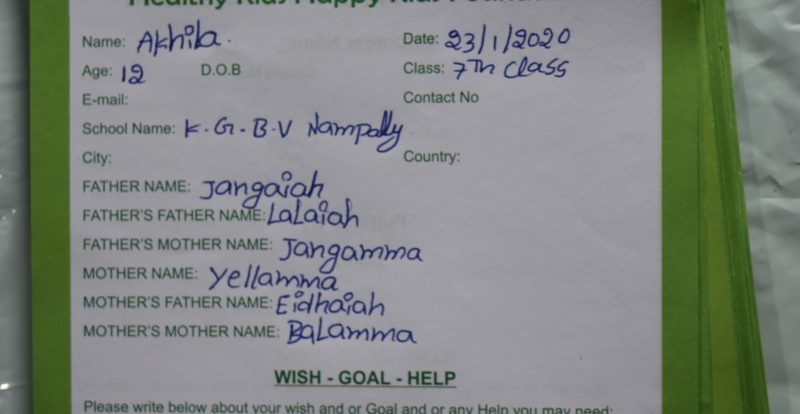 Healthy Kids Happy Kids
Name: Akhila. Date: 23/1/2020
Age: 12 D.O.B Class: 7Th Class
E-mail: Contact No
School Name: K.G.B.V Nampally
City: Country:
FATHER NAME: Jangaiah
FATHER'S FATHER NAME: LaLaiah
FATHER'S MOTHER NAME: Jangamma
MOTHER NAME: Yellamma
MOTHER'S FATHER NAME: Eidhaiah
MOTHER'S MOTHER NAME: BaLamma
WISH - GOAL - HELP
Please write below about your wish and or Goal and or any Help you may need: